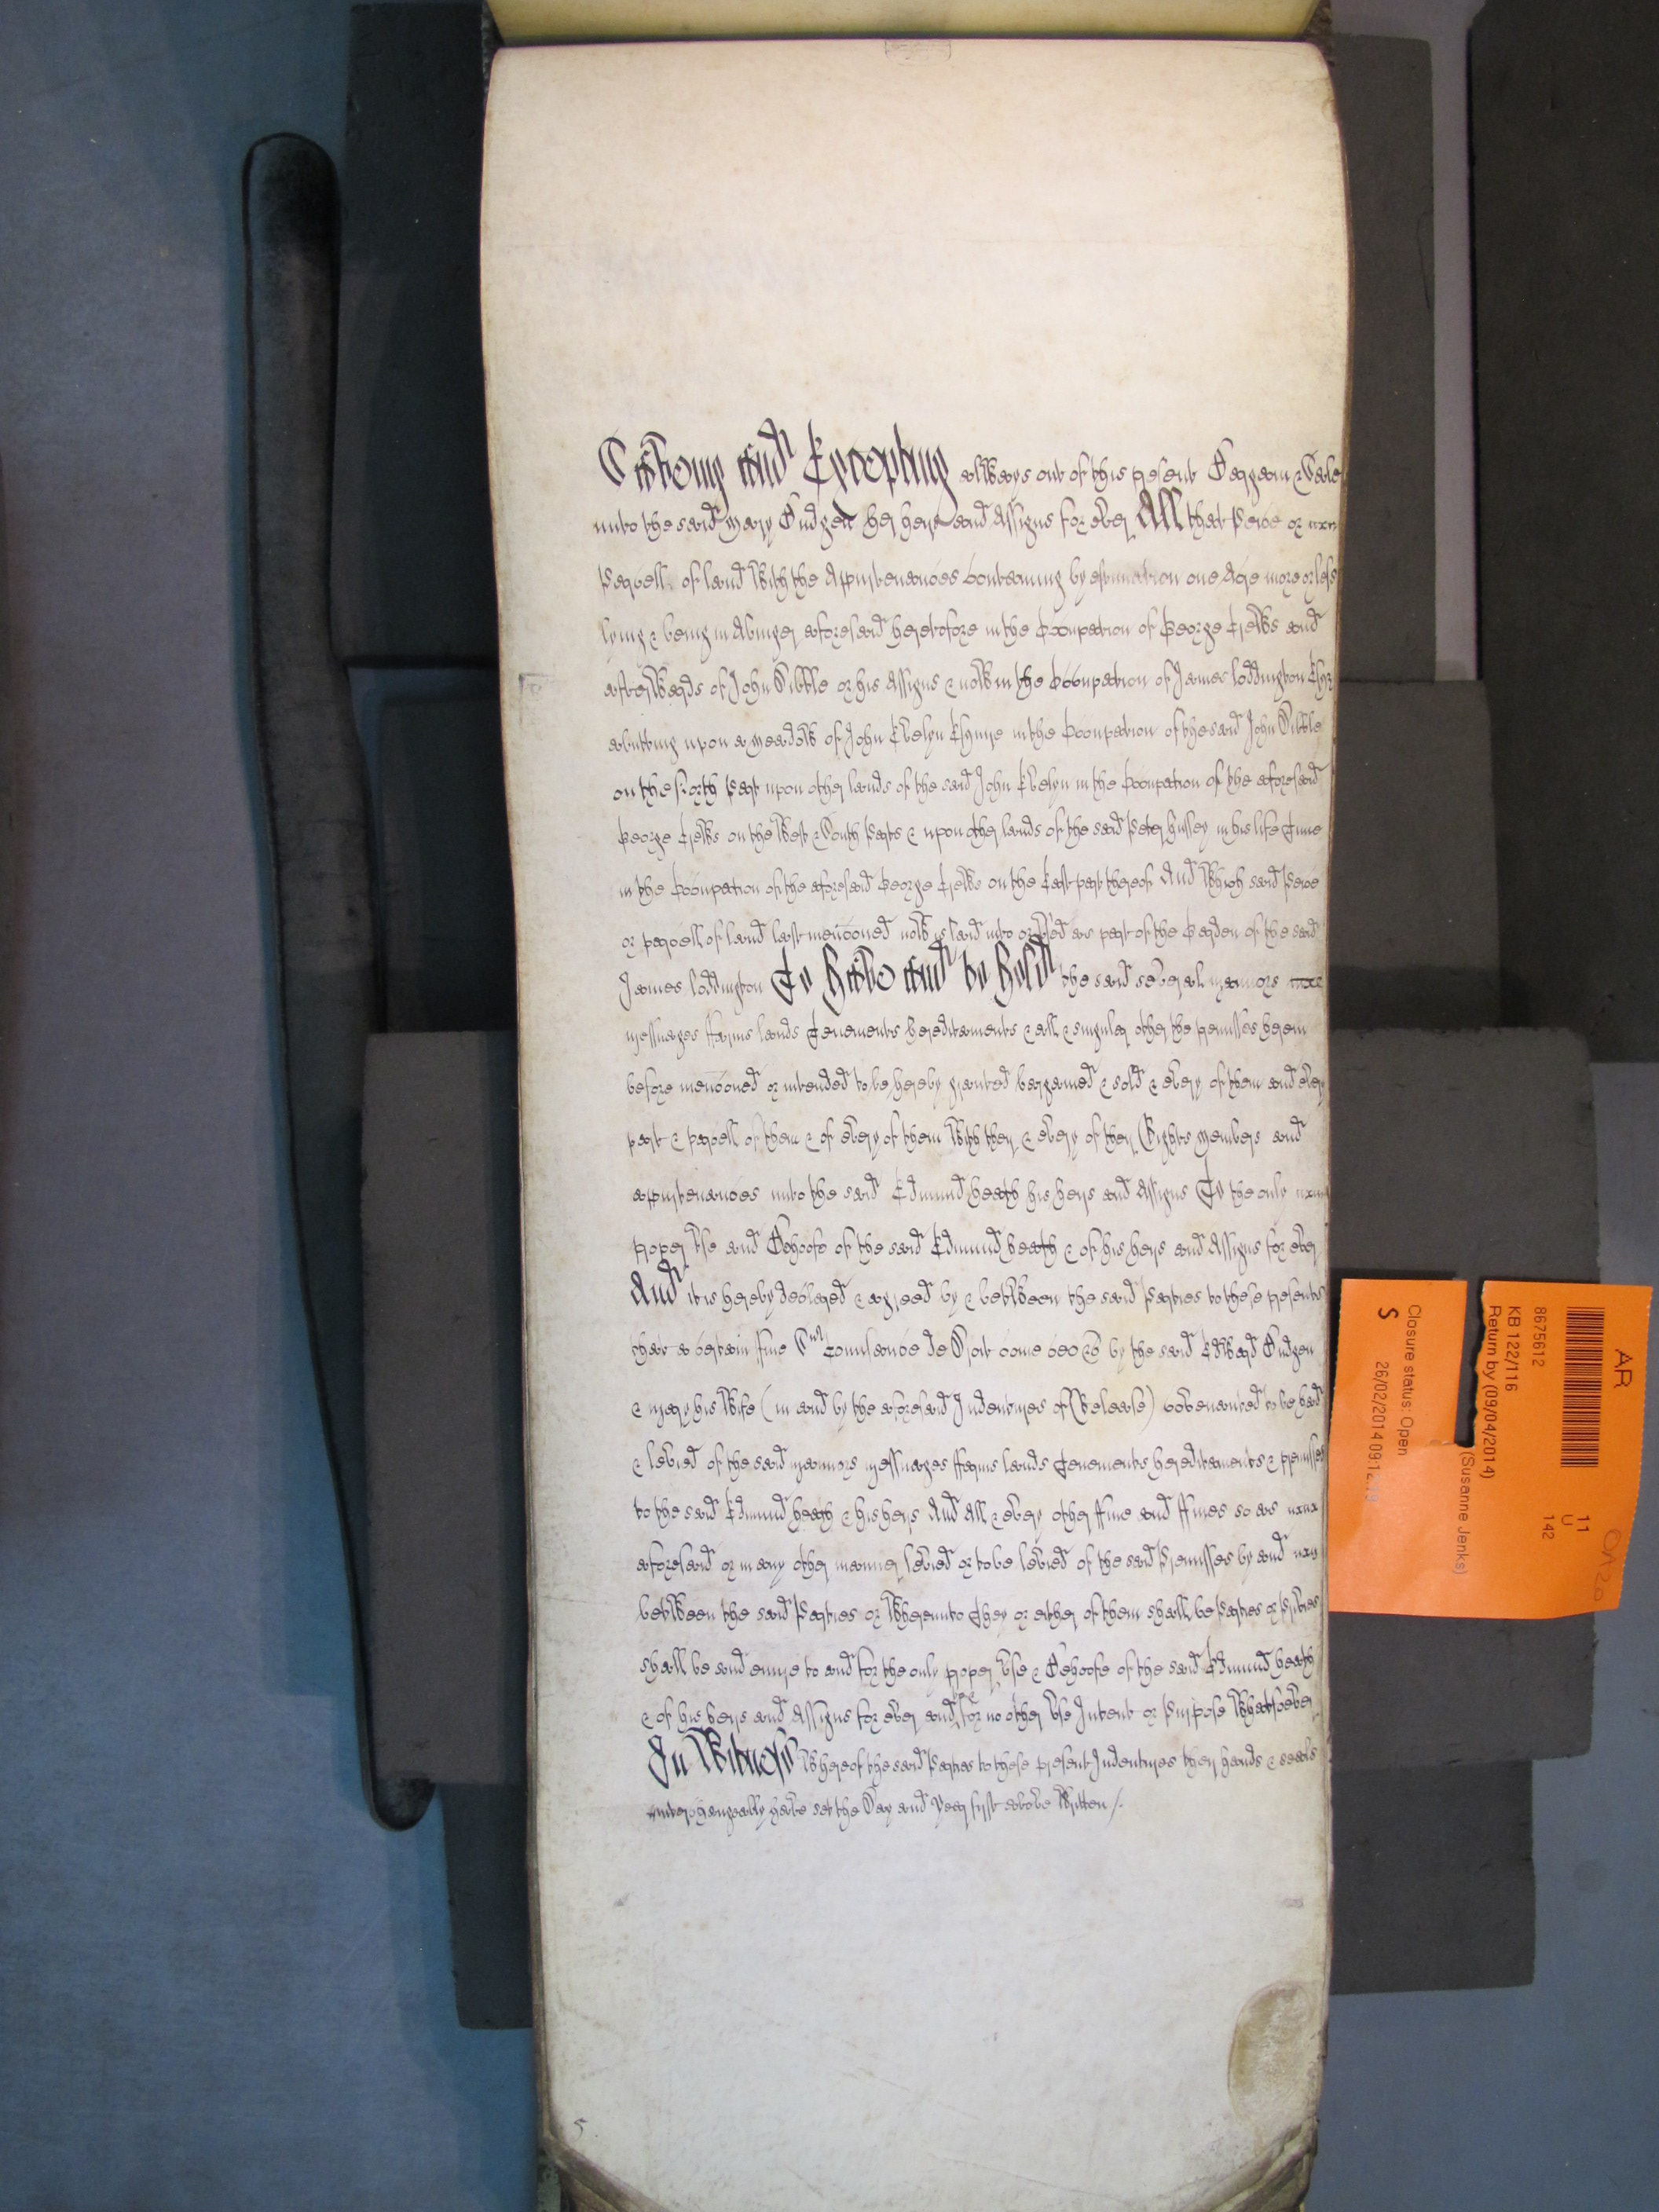 Saveing and Excepting allways out of this present Bargain & Sale
unto the said Mary Budgen her heirs and Assigns for ever All that Peice or
Parcell of land with the Appurtenances containing by estimation one Acre more or less
lying & being in Abinger aforesaid heretofore in the Occupation of George Crews and
afterwards of John Dibble or his Assigns & now in the Occupation of James loddington Esqr
abutting upon a Meadow of John Evelyn Esquire in the Occupation of the said John Dibble
on the North Part upon other lands of the said John Evelyn in the Occupation of the aforesaid
George Crews on the West & South Parts & upon other lands of the said Peter hussey in his life Time
in the Occupation of the aforesaid George Crews on the East part thereof And Which said Peice
or parcell of land last mencioned now is laid into or used as part of the Garden of the said
James loddington To Have and to hold the said several Mannors
Messuages ffarms lands Tenements hereditaments & all & singular other the premisses herein
before mencioned or intended to be hereby granted bargained & sold & every of them and every
part & parcell of them & of every of them With their & every of their Rights Members and
appurtenances unto the said Edmund heath his heirs and Assigns To the only
proper Use and Behoofe of the said Edmund heath & of his heirs and Assigns for ever
And it is hereby declared & agreed by & between the said Parties to these presents
that a certain ffine Sur Conusance de Droit come ceo &c by the said Edward Budgen
& Mary his Wife (in and by the aforesaid Indentures of Release) covenanted to be had
& levied of the said Mannors Messuages ffarms lands Tenements hereditaments & premisses
to the said Edmund heath & his heirs And All & every other ffine and ffines so as
aforesaid or in any other manner levied or to be levied of the said Premisses by and
between the said Parties or Whereunto They or either of them shall be Parties or Privies
shall be and enure to and for the only proper Use & Behoofe of the said Edmund heath
& of his heirs and Assigns for ever and to & for no other Use Intent or Purpose Whatsoever
In Witness Whereof the said Parties to these present Indentures their hands & seals
interchangeably have set the Day and Year first above Written /.
5
AR
8675612
KB 122/116
Return by (09/04/2014)
11
U
142
(Susanne Jenks)
Closure status: Open
26/02/2014 09:12
S